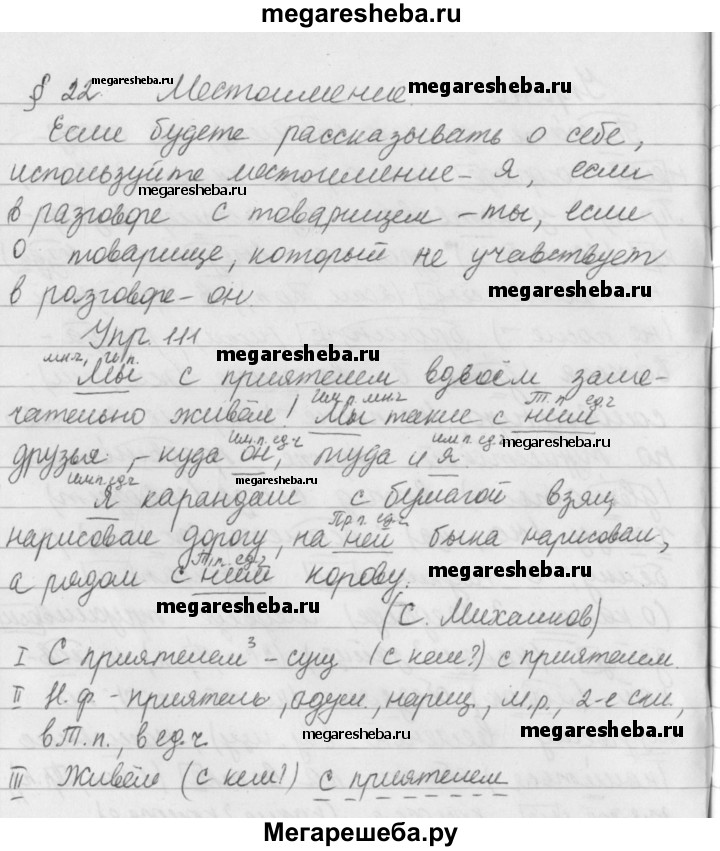 megaresheba.ru
§ 22. Местоимение.
megaresheba.ru
megaresheba.ru
Если будете рассказывать о себе,
используйте местоимение – я, если
megaresheba.ru
в разговоре с товарищем – ты, если
о товарище, который не учавствует
в разговоре – он.
megaresheba.ru
Упр. 111
megaresheba.ru
мн.ч, И.п.
Мы с приятелем вдвоём заме-
им.п. мн.ч Т.п. ед.ч
чательно живём! Мы такие с ним
megaresheba.ru
им.п. ед.ч им.п. ед.ч
друзья, – куда он, туда и я.
megaresheba.ru
им.п ед.ч
Я карандаш с бумагой взял,
Пр.п. ед.ч
нарисовал дорогу, на ней быка нарисовал,
Т.п. ед.ч
а рядом с ним корову.
megaresheba.ru
megaresheba.ru
(С. Михалков)
I С приятелем³ – сущ (с кем?) с приятелем.
II Н.ф. – приятель, одуш., нариц., м.р., 2-е скл.,
в Т.п., в ед.ч.
megaresheba.ru
III Живём (с кем?) с приятелем
megaresheba.ru
Мегарешеба.ру